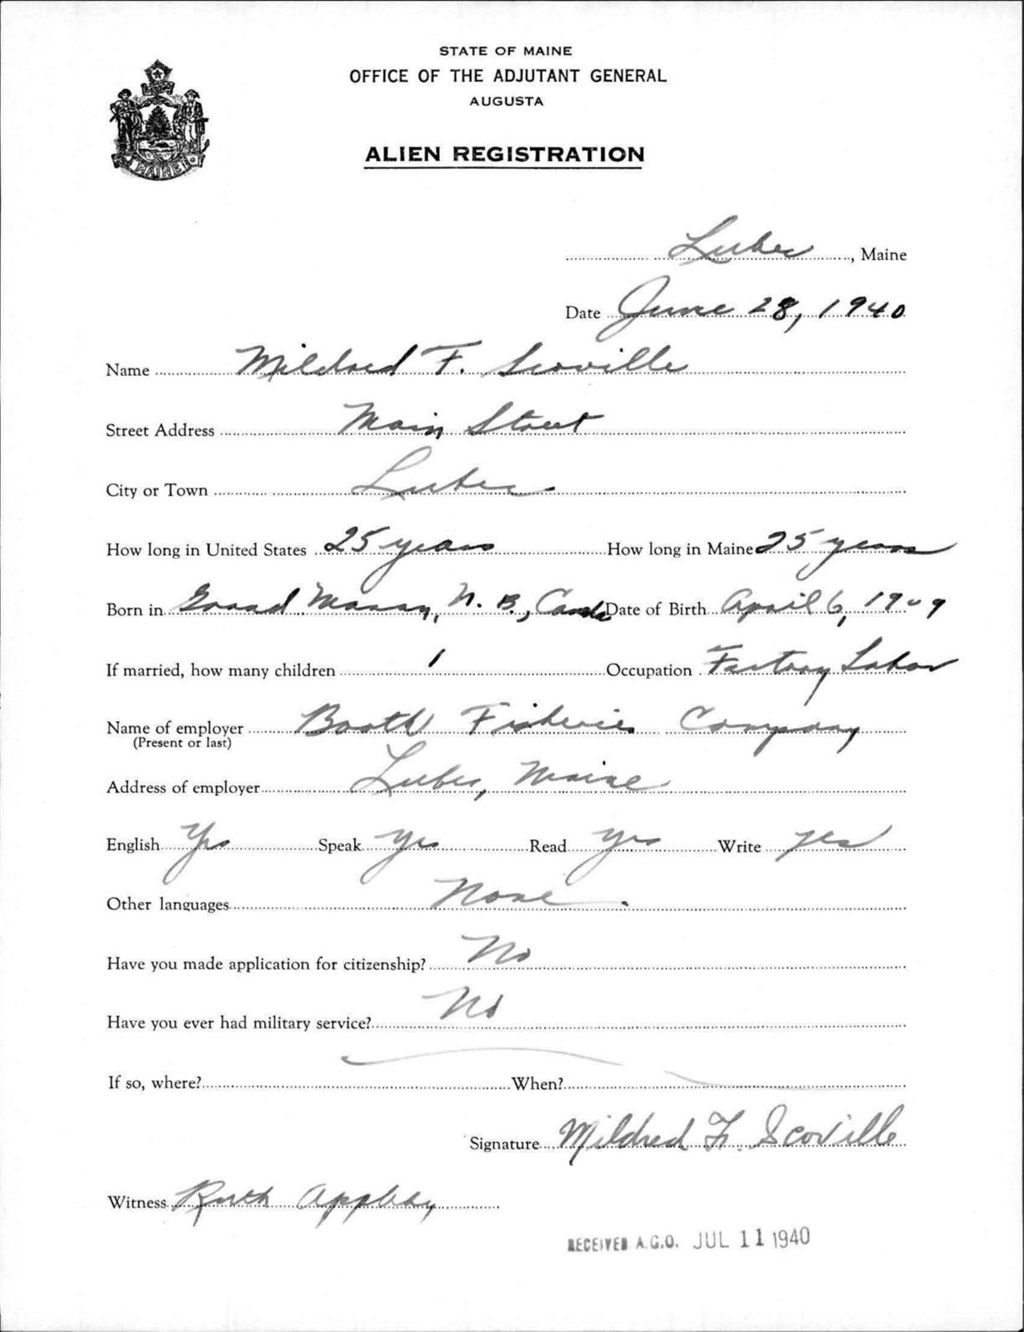 STATE OF MAINE
OFFICE OF THE ADJUTANT GENERAL
AUGUSTA
ALIEN REGISTRATION
MAINE
Lubec, Maine
Date June 28, 1940
Name Mildred F. Scoville
Street Address Main Street
City or Town Lubec
How long in United States 25 years How long in Maine 25 years
Born in Grand Manan, N. B., Canda Date of Birth April 6, 1909
If married, how many children 1 Occupation Factory Labor
Name of employer Booth Fisheries Company
(Present or last)
Address of employer Lubec, Maine
English Yes Speak Yes Read Yes Write Yes
Other languages None.
Have you made application for citizenship? No
Have you ever had military service? No
If so, where? When?
Signature Mildred F. Scoville
Witness Ruth Appleby
RECEIVED A.G.O. JUL 11 1940